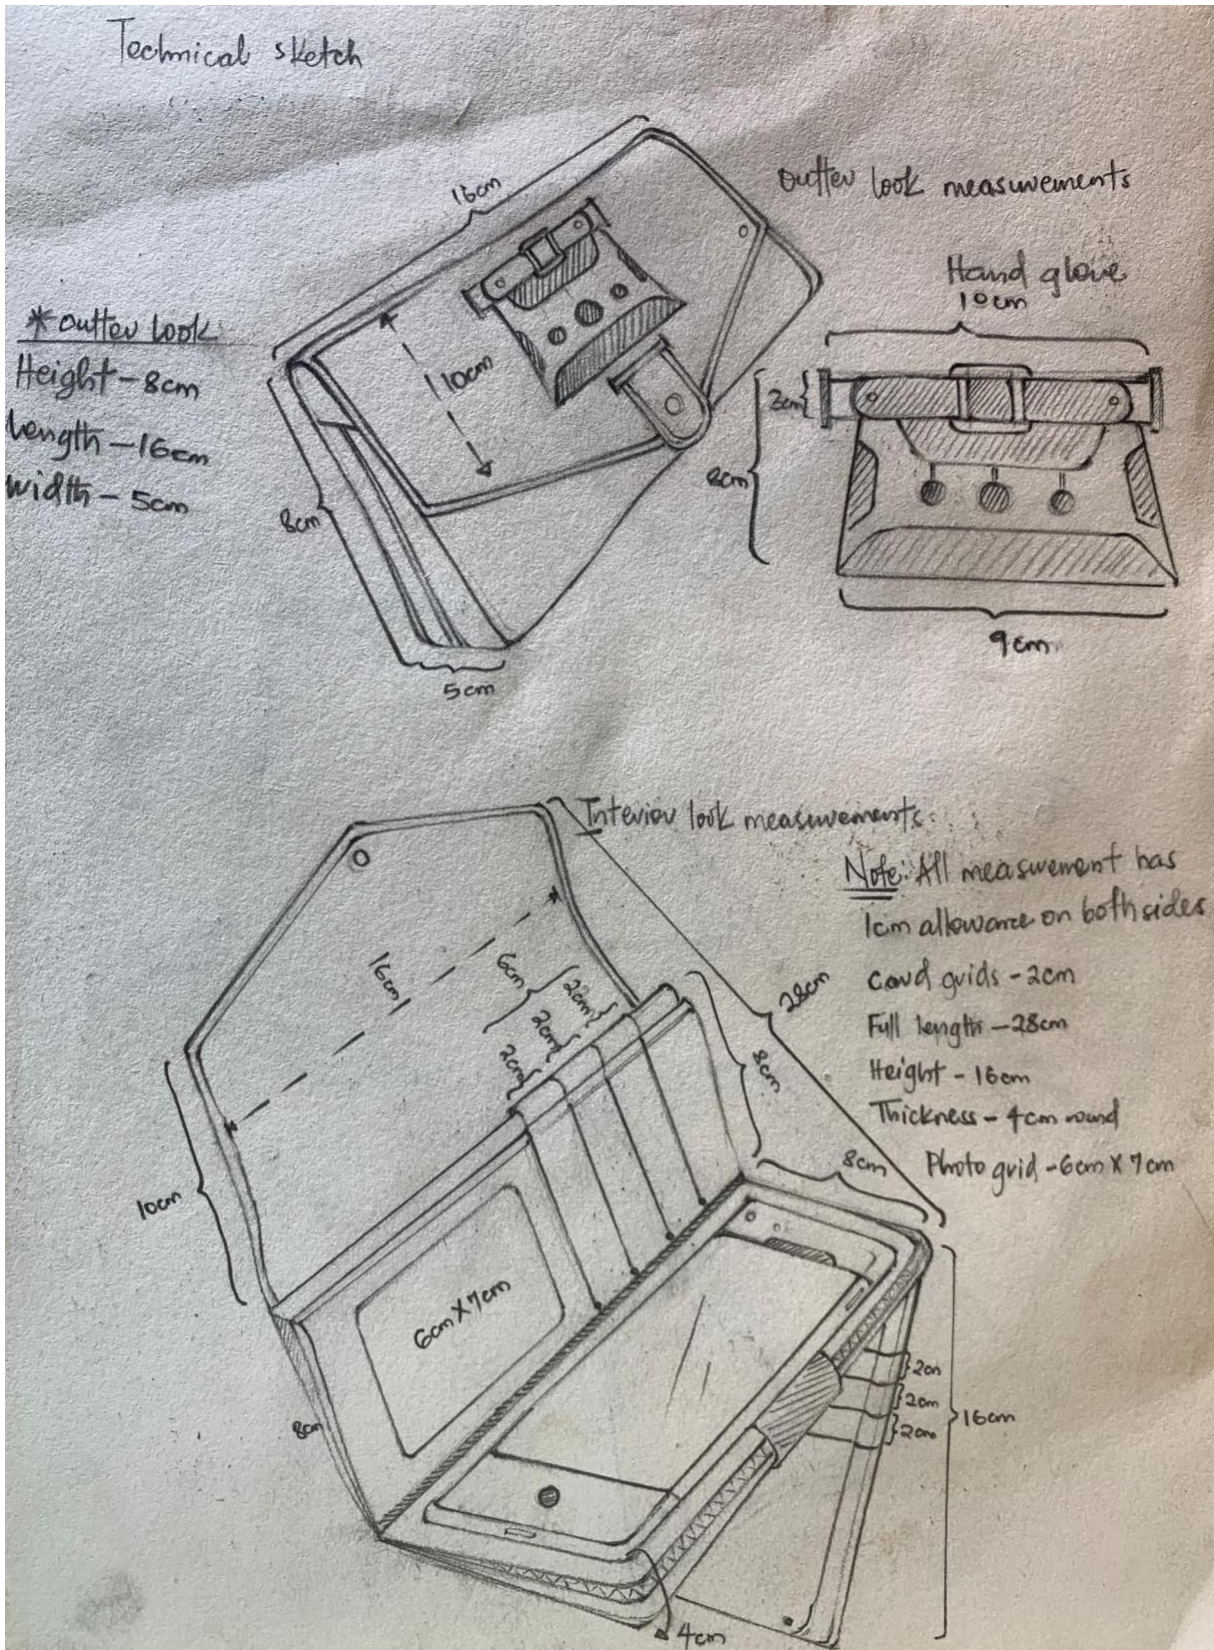 Technical sketch
outter look measurements
16cm
Hand glove
10cm
* outter look
Height - 8cm
Length - 16cm
width - 5cm
10cm
8cm
5cm
2cm
8cm
9cm
Interior look measurements.
Note: All measurement has
1cm allowance on both sides
Card grids - 2cm
Full length - 28cm
Height - 16cm
Thickness - 4cm round
Photo grid - 6cm X 7cm
16cm
6cm
2cm
2cm
2cm
28cm
8cm
8cm
10cm
6cm X 7cm
8cm
2cm
2cm
2cm
16cm
4cm